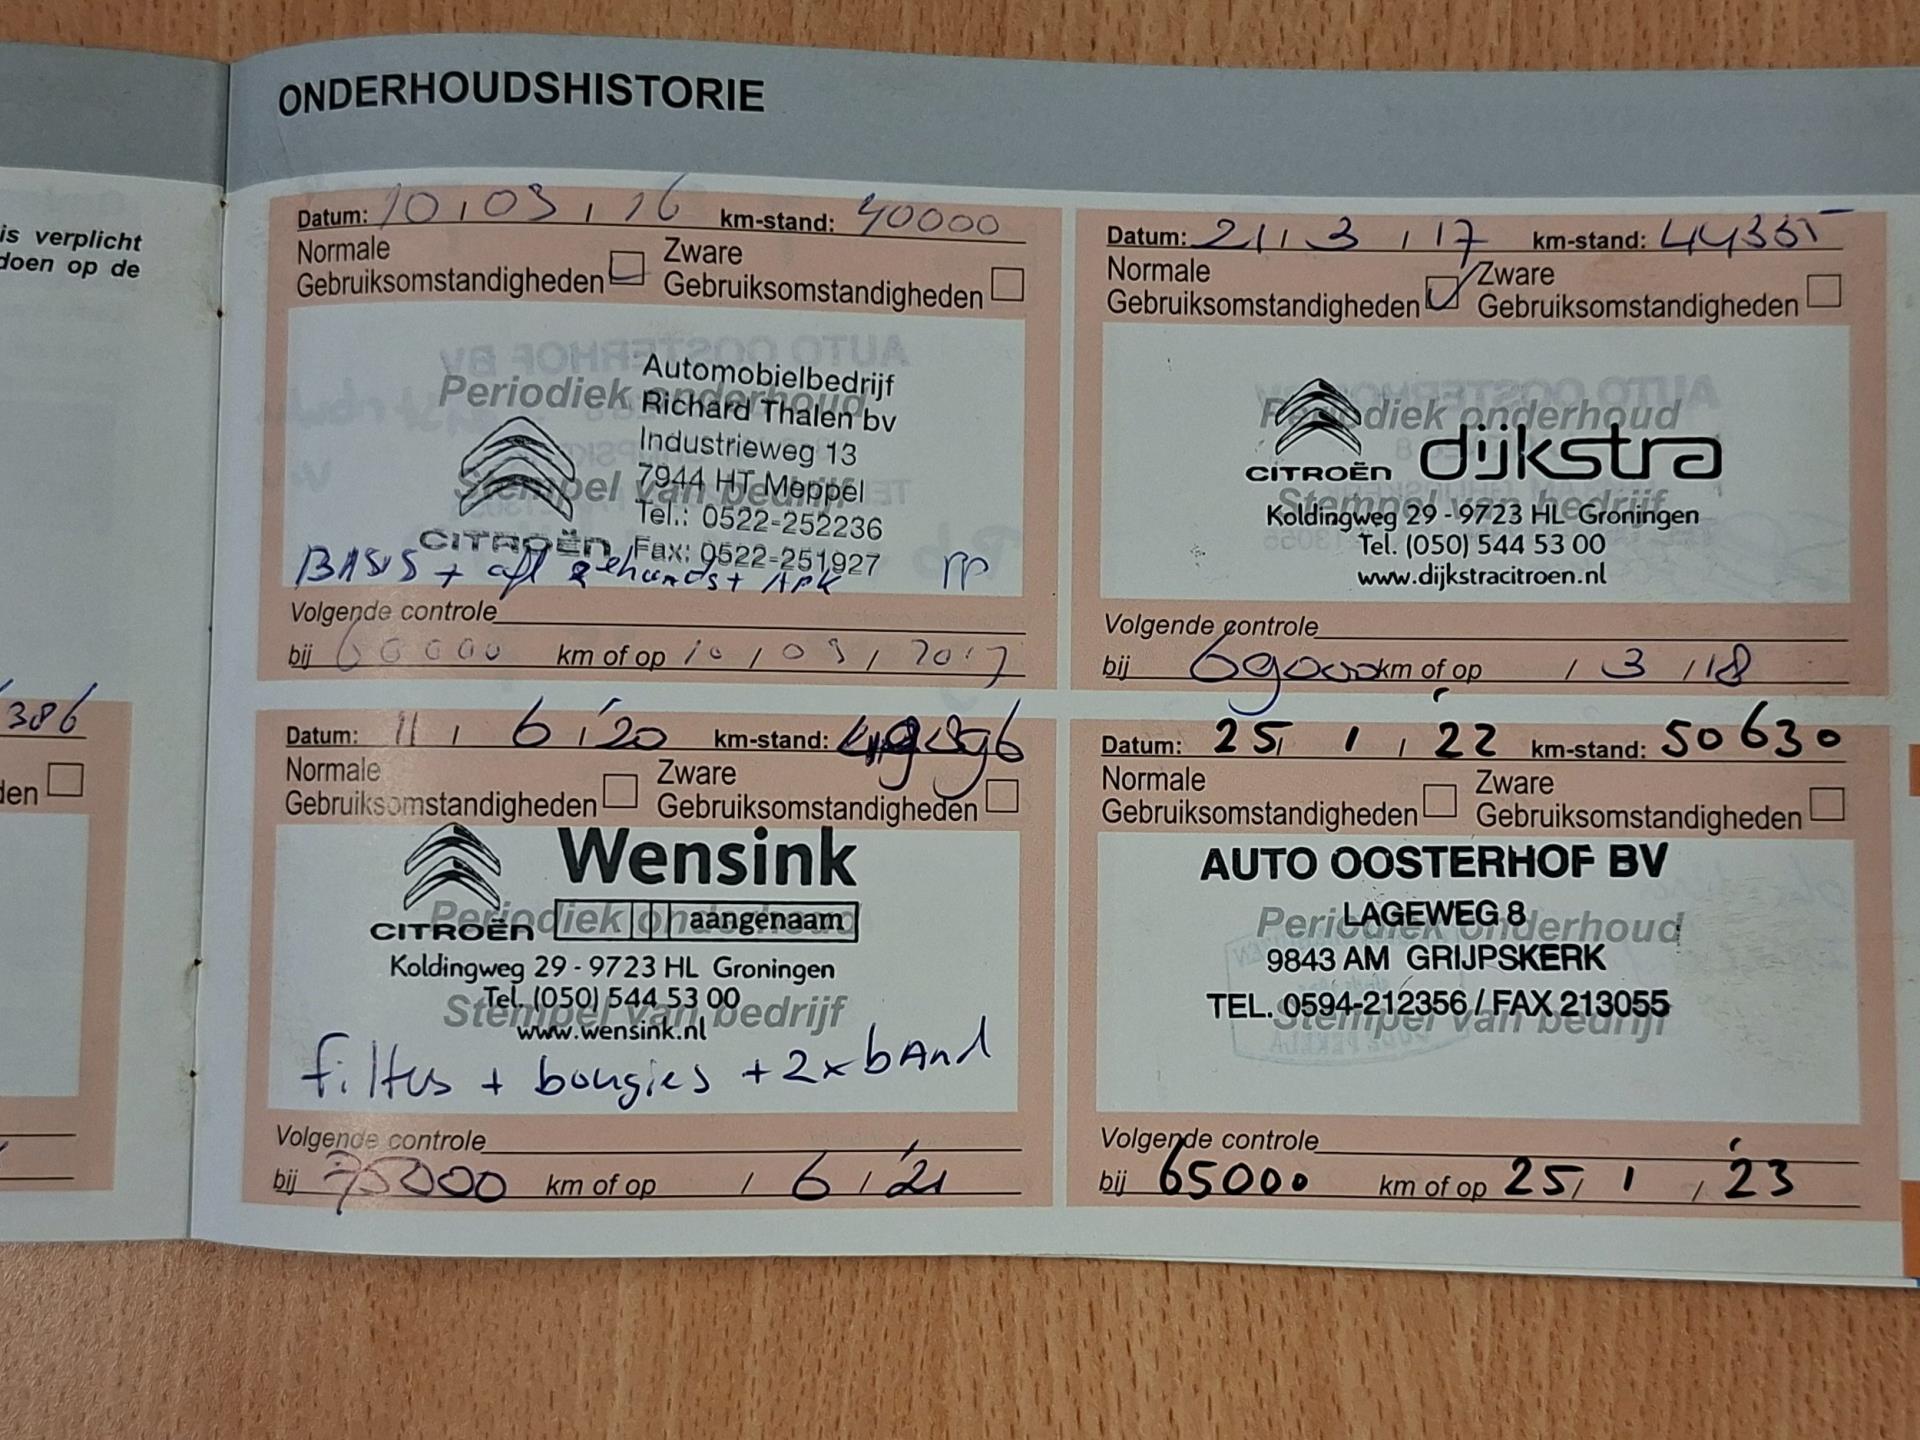 ONDERHOUDSHISTORIE
is verplicht
doen op de
386
den
Datum: 10 / 03 / 16 km-stand: 40000
Normale
Gebruiksomstandigheden
Zware
Gebruiksomstandigheden
Periodiek onderhoud
Stempel van bedrijf
Automobielbedrijf
Richard Thalen bv
Industrieweg 13
7944 HT Meppel
Tel.: 0522-252236
CITROËN Fax: 0522-251927
BASIS + afl gehands + APK PP
Volgende controle
bij 60000 km of op 10 / 03 / 2017
Datum: 21 / 3 / 17 km-stand: 44355
Normale
Gebruiksomstandigheden
Zware
Gebruiksomstandigheden
Periodiek onderhoud
CITROËN dijkstra
Stempel van bedrijf
Koldingweg 29 - 9723 HL Groningen
Tel. (050) 544 53 00
www.dijkstracitroen.nl
Volgende controle
bij 69000 km of op / 3 / 18
Datum: 11 / 6 / '20 km-stand:
Normale
Gebruiksomstandigheden
Zware
Gebruiksomstandigheden
Wensink
Periodiek onderhoud
CITROËN aangenaam
Koldingweg 29 - 9723 HL Groningen
Tel. (050) 544 53 00
Stempel van bedrijf
www.wensink.nl
filters + bougies + 2x bAnd
Volgende controle
bij 75000 km of op / 6 / '21
Datum: 25 / 1 / '22 km-stand: 50630
Normale
Gebruiksomstandigheden
Zware
Gebruiksomstandigheden
AUTO OOSTERHOF BV
LAGEWEG 8
Periodiek onderhoud
9843 AM GRIJPSKERK
TEL. 0594-212356 / FAX 213055
Stempel van bedrijf
Volgende controle
bij 65000 km of op 25 / 1 / '23